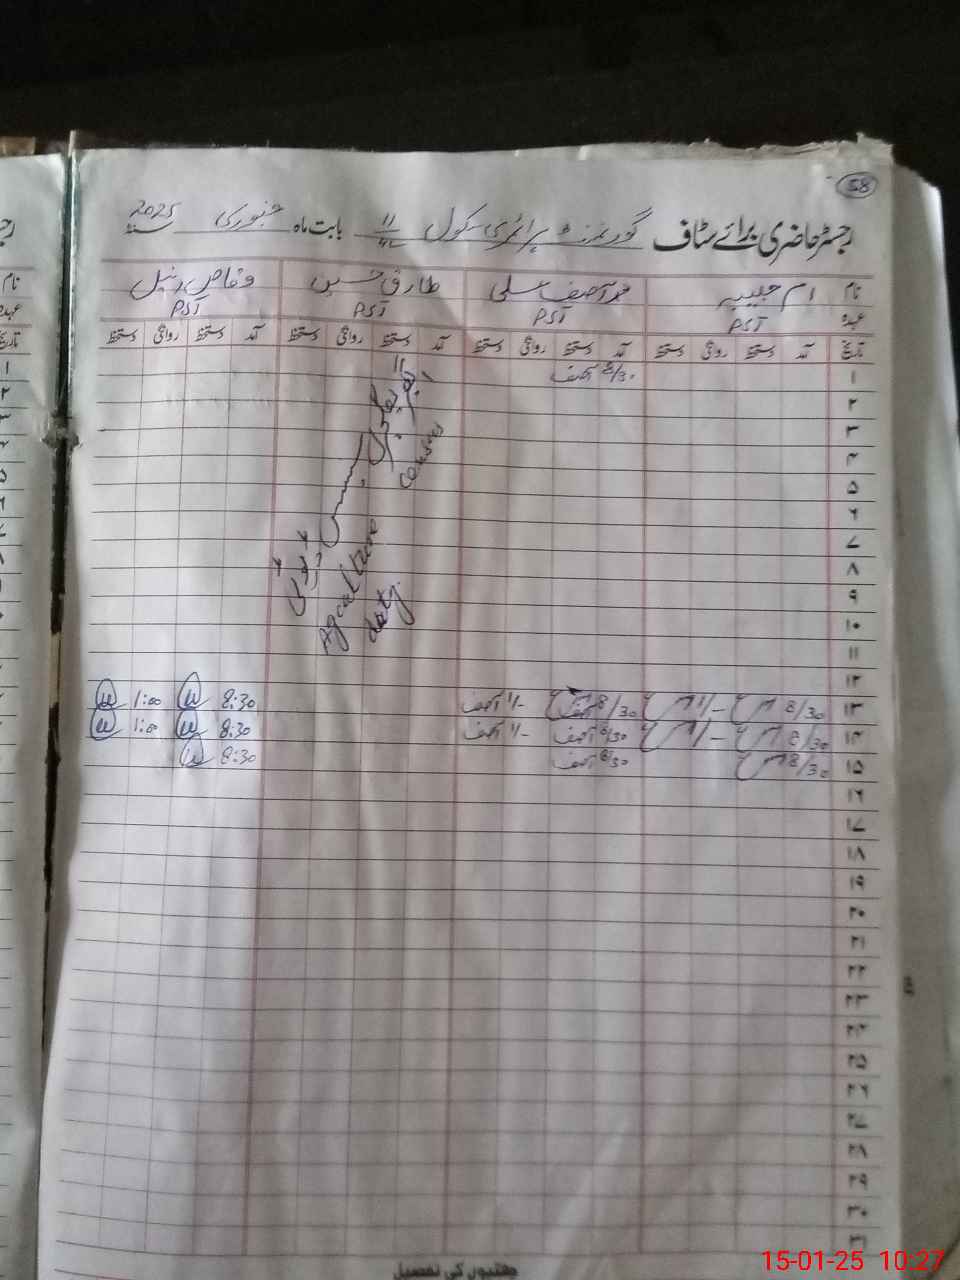 58
رجسٹر حاضری برائے سٹاف گورنمنٹ پرائمری سکول 11 بابت ماہ جنوری سنہ 2025
نام ام حبیبہ محمد آصف سلمی طارق حسین وقاص
عہدہ PST PST PST PST
تاریخ آمد دستخط روانگی دستخط آمد دستخط روانگی دستخط آمد دستخط روانگی دستخط آمد دستخط روانگی دستخط
۱ 8/30 آصف
۲
۳
۴
۵
۶
۷
۸
۹
۱۰
۱۱
۱۲
۱۳ 8/30 1/- 8/30 آصف 1/- آصف 8:30 1:00
۱۴ 8/30 1/- 8/30 آصف 1/- آصف 8:30 1:00
۱۵ 8/30 8/30 آصف 8:30
۱۶
۱۷
۱۸
۱۹
۲۰
۲۱
۲۲
۲۳
۲۴
۲۵
۲۶
۲۷
۲۸
۲۹
۳۰
۳۱
ڈیوٹی
Agcalture Census
duty.
چھٹیوں کی تفصیل
15-01-25 10:27